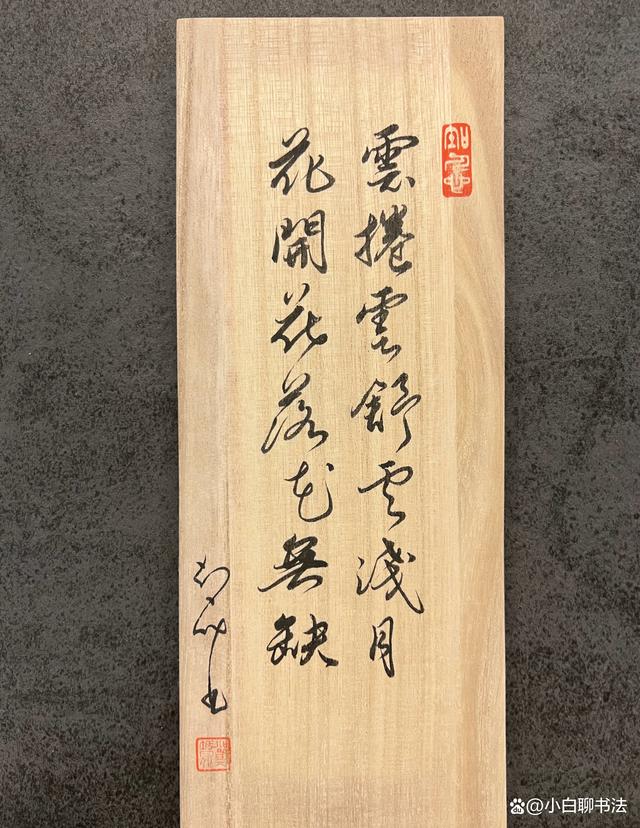 雲捲雲舒雲淺月
花開花落花無缺
@小白聊书法